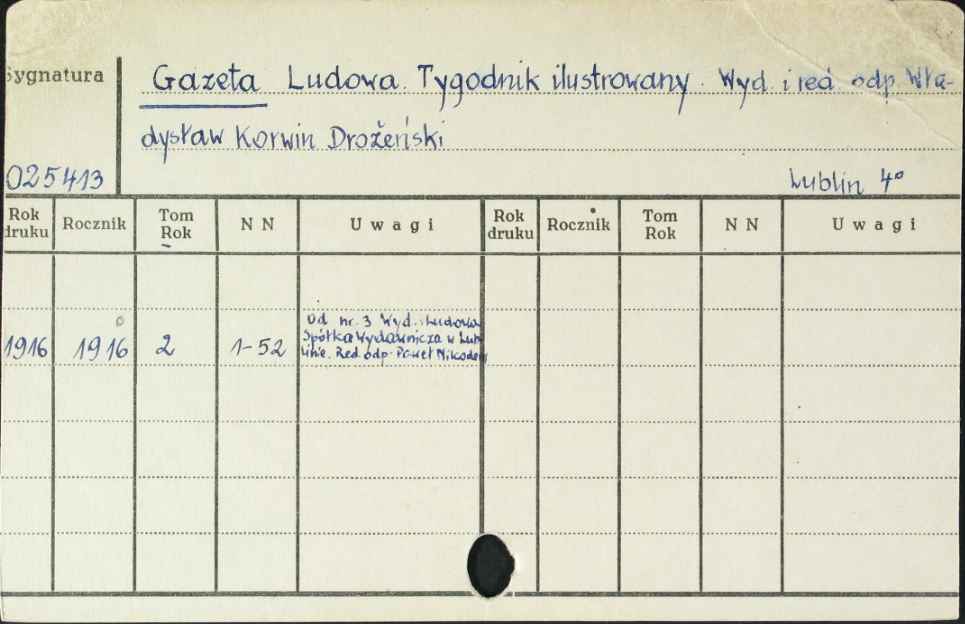 Sygnatura
Gazeta Ludowa. Tygodnik ilustrowany. Wyd. i red. odp. Wła-
dysław Korwin Drożeński
025413
Lublin 4°
Rok druku Rocznik Tom Rok NN Uwagi Rok druku Rocznik Tom Rok NN Uwagi
Od nr. 3 Wyd. Ludowa
Spółka Wydawnicza w Lub-
linie. Red. odp. Paweł Nikodem
1916 1916 2 1-52